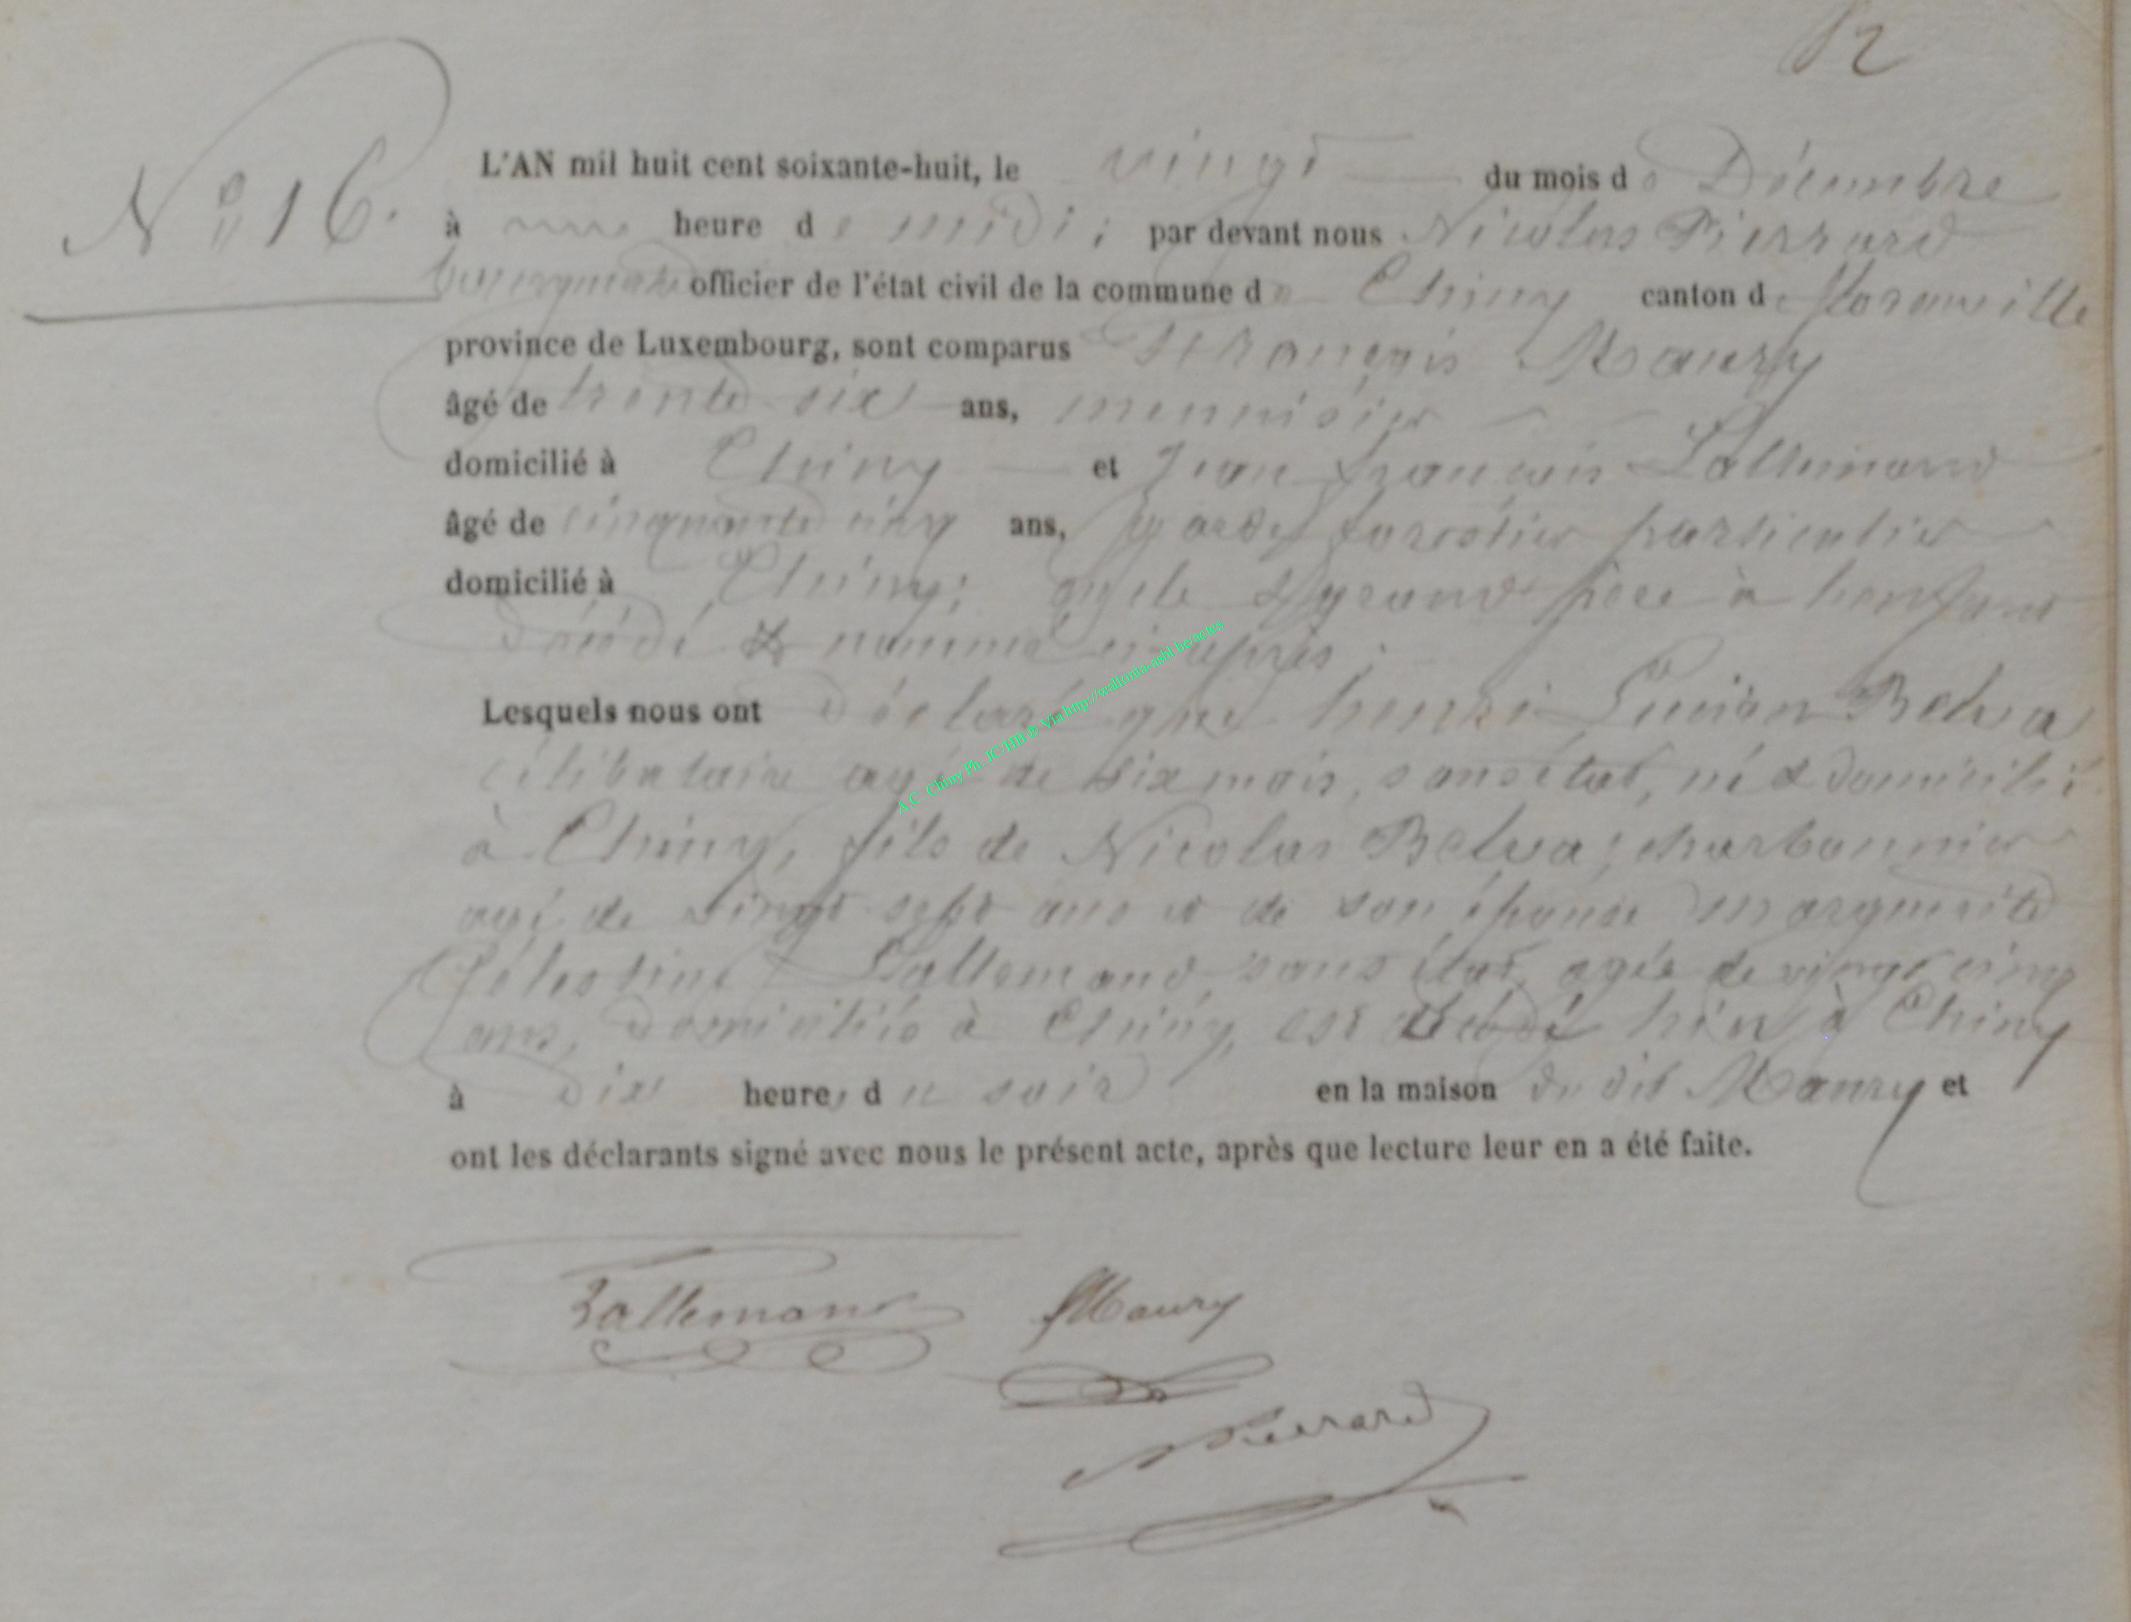 N° 16.
L'AN mil huit cent soixante-huit, le vingt du mois de Décembre
à une heure de midi; par devant nous Nicolas Pierrard
bourgmestre officier de l'état civil de la commune de Chiny canton de Florenville
province de Luxembourg, sont comparus François Maury
âgé de trente six ans, menuisier
domicilié à Chiny et Jean François Lallemand
âgé de cinquante cinq ans, garde forestier particulier
domicilié à Chiny; grand père à l'enfant
décédé & nommé ci après;
Lesquels nous ont déclaré que henri Lucien Belva
célibataire agé de six mois, sans état, né & domicilié
à Chiny, fils de Nicolas Belva, charbonnier
agé de vingt sept ans et de son épouse Marguerite
Célestine Lallemand, sans état, agée de vingt cinq
ans, domiciliés à Chiny, est décédé hier à Chiny
à dix heures du soir en la maison du dit Maury et
ont les déclarants signé avec nous le présent acte, après que lecture leur en a été faite.
Lallemand Maury
Pierrard